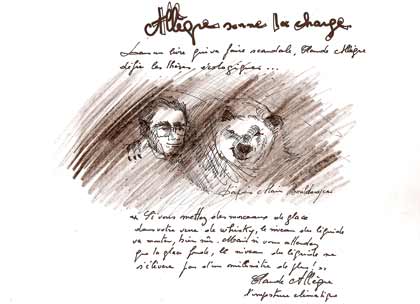 Allègre sonne la charge
Dans un livre qui va faire scandale, Claude Allègre
défie les thèses écologiques...
D'après Alain Bouldouyre
"Si vous mettez des morceaux de glace
dans votre verre de whisky, le niveau du liquide
va monter, bien sûr. Mais si vous attendez
que la glace fonde, le niveau du liquide ne
s'élèvera pas d'un millimètre de plus!"
Claude Allègre
L'imposture climatique